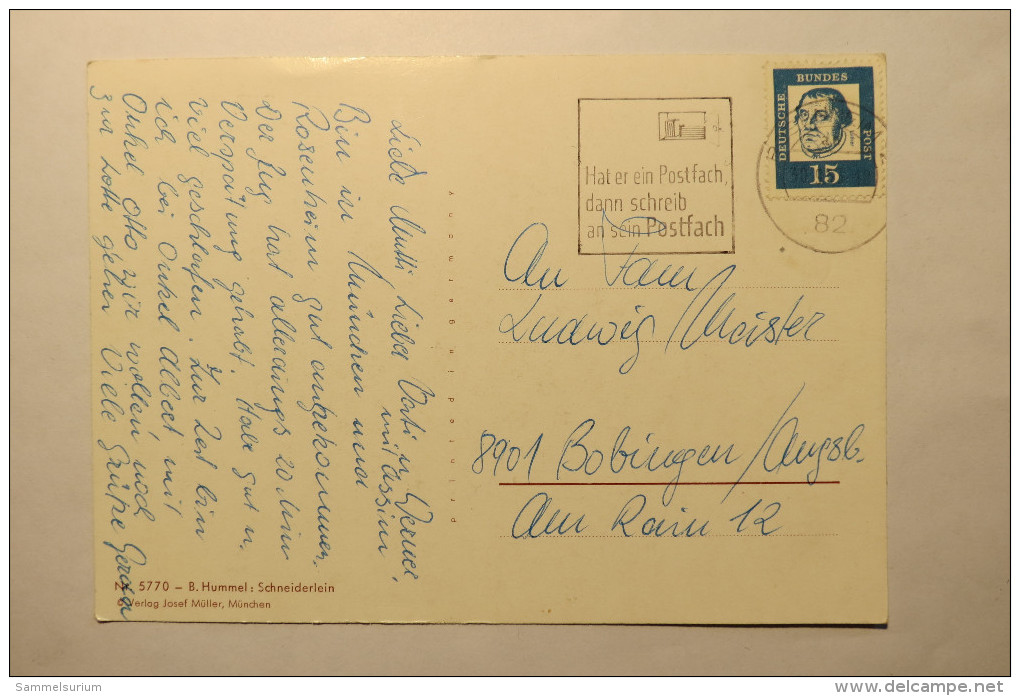 Liebe Mutti, Lieber Vati u. Werner,
mit assim
Bin in München und
Rosenheim gut angekommen.
Der Zug hat allerdings 20 Min
Verspätung gehabt. Habe gut u.
viel geschlafen. Zur Zeit bin
ich bei Onkel Albert mit
Onkel Otto wir wollen noch
zur Lotte gehen. Viele Grüße Gerda
Printed in Germany
Nr. 5770 – B. Hummel: Schneiderlein
Verlag Josef Müller, München
Hat er ein Postfach,
dann schreib
an sein Postfach
DEUTSCHE BUNDES POST
15
82
An Fam
Ludwig Meister
8901 Bobingen/Augsb.
Am Rain 12
Sammelsurium
www.delcampe.net